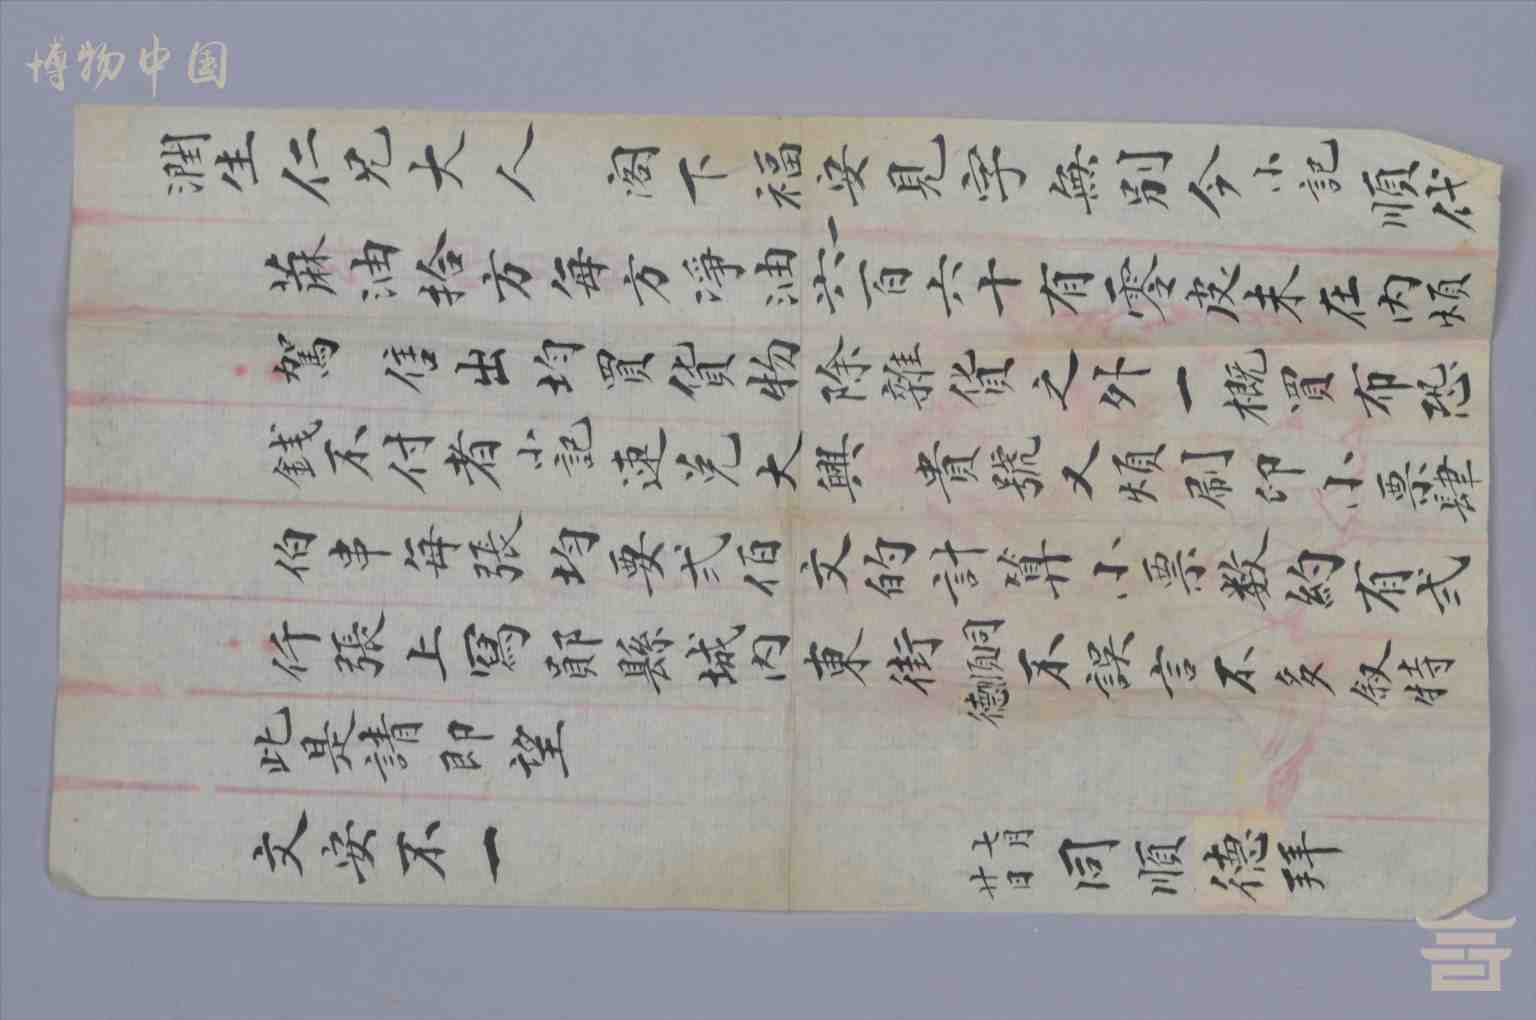 博物中国
潤生仁兄大人 閣下福安見字無别今小記順代
蔴油拾方每方淨油一六百六十有零皮未在内煩
駕 售出均買貨物除雜貨之外一概買布恐
錢不付者小記速兑大興 貴號又煩刷印小票肆
伯串每張均要弍伯文的計算小票数約有弍
仟張上寫鄖縣城内東街同順德不誤言不多叙特
此是請即望
文安不一
七月廿日 同順德拜